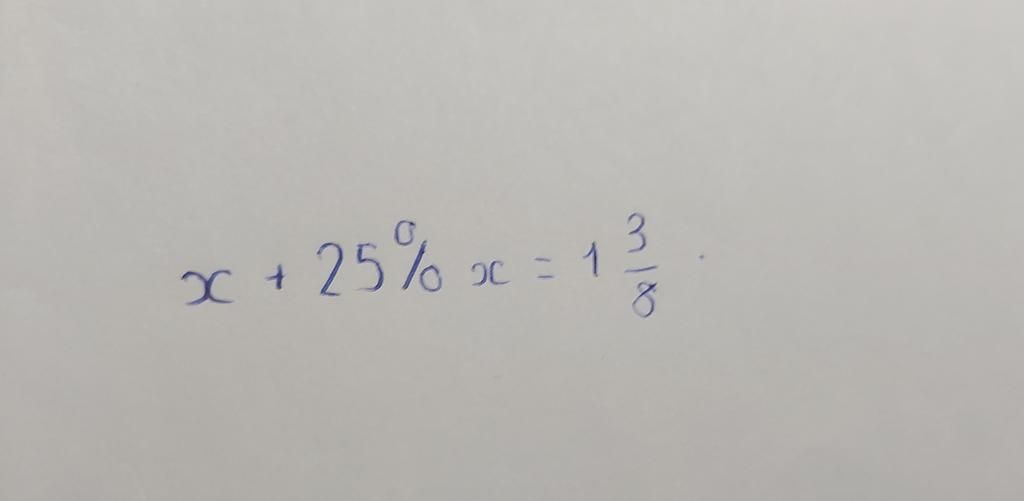 x + 25% x = 1 3/8